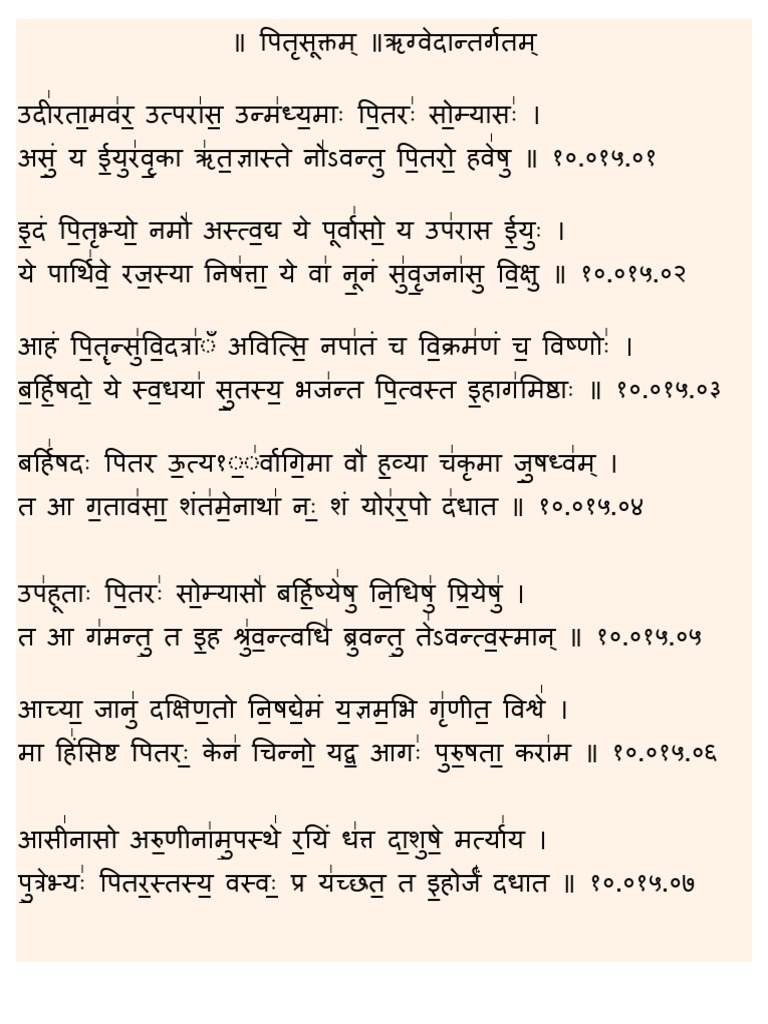 ॥ पितृसूक्तम् ॥ऋग्वेदान्तर्गतम्
उदी॑रता॒मव॑र॒ उत्परा॑स॒ उन्म॑ध्य॒माः पि॒तरः॑ सो॒म्यासः॑ ।
असुं॒ य ई॒युर॑वृ॒का ऋ॑त॒ज्ञास्ते नो॑ऽवन्तु पि॒तरो॒ हवे॑षु ॥ १०.०१५.०१
इ॒दं पि॒तृभ्यो॒ नमो॑ अस्त्व॒द्य ये पूर्वा॑सो॒ य उप॑रास ई॒युः ।
ये पार्थि॑वे॒ रज॒स्या निष॑त्ता॒ ये वा॑ नू॒नं सु॑वृ॒जना॑सु वि॒क्षु ॥ १०.०१५.०२
आहं पि॒तॄन्सु॑वि॒दत्रा॑ँ अवित्सि॒ नपा॑तं च वि॒क्रम॑णं च॒ विष्णोः॑ ।
ब॒र्हि॒षदो॒ ये स्व॒धया॑ सु॒तस्य॒ भज॑न्त पि॒त्वस्त इ॒हाग॑मिष्ठाः ॥ १०.०१५.०३
बर्हि॑षदः पितर ऊ॒त्य१॒॑र्वागि॒मा वो॑ ह॒व्या च॑कृमा जु॒षध्व॑म् ।
त आ ग॒ताव॑सा॒ शंत॑मे॒नाथा॑ नः॒ शं योर॑र॒पो द॑धात ॥ १०.०१५.०४
उप॑हूताः पि॒तरः॑ सो॒म्यासो॑ बर्हि॒ष्ये॑षु नि॒धिषु॑ प्रि॒येषु॑ ।
त आ ग॑मन्तु॒ त इ॒ह श्रु॑व॒न्त्वधि॑ ब्रुवन्तु॒ ते॑ऽवन्त्व॒स्मान् ॥ १०.०१५.०५
आच्या॒ जानु॑ दक्षिण॒तो नि॒षद्ये॒मं य॒ज्ञम॒भि गृ॑णीत॒ विश्वे॑ ।
मा हिं॑सिष्ट पितरः॒ केन॑ चिन्नो॒ यद्व॒ आगः॑ पुरु॒षता॒ करा॑म ॥ १०.०१५.०६
आसी॑नासो अरु॒णीना॑मु॒पस्थे॑ र॒यिं ध॑त्त दा॒शुषे॒ मर्त्या॑य ।
पु॒त्रेभ्यः॑ पितर॒स्तस्य॒ वस्वः॒ प्र य॑च्छत॒ त इ॒होर्जं॑ दधात ॥ १०.०१५.०७